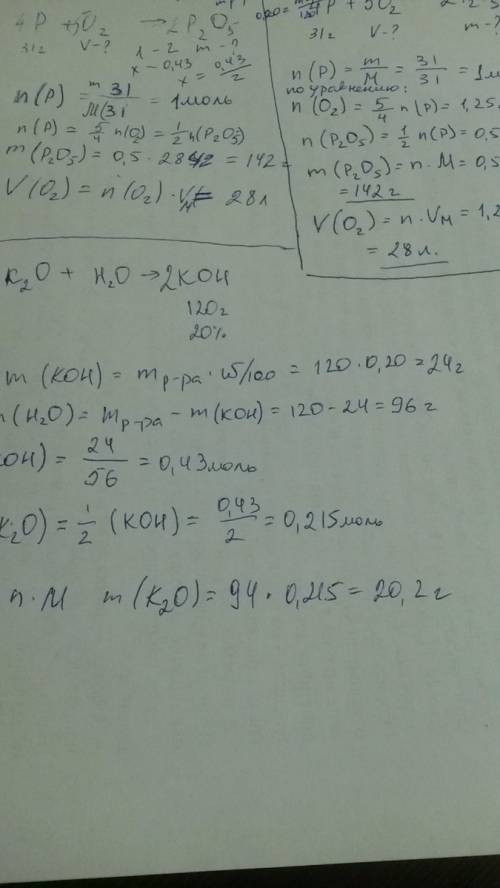 4P + 5O₂ → 2P₂O₅
31г V-? m-?
1 - 2
x - 0,43
x = 0,43/2
n(P) = m 31 / M(31 = 1моль
n(P) = 5/4 n(O₂) = 1/2 n(P₂O₅)
m(P₂O₅) = 0,5 · 284 = 142
V(O₂) = n(O₂) · Vм = 28л
P + 5O₂
31г V-? m-?
n(P) = m/M = 31/31 = 1м
по уравнению:
n(O₂) = 5/4 n(P) = 1,25
n(P₂O₅) = 1/2 n(P) = 0,5
m(P₂O₅) = n · M = 0,5
= 142 г
V(O₂) = n · Vм = 1,2
= 28 л.
K₂O + H₂O → 2KOH
120г
20%
m(KOH) = mр-ра · ω/100 = 120 · 0,20 = 24г
(H₂O) = mр-ра - m(KOH) = 120 - 24 = 96 г
OH) = 24/56 = 0,43моль
K₂O) = 1/2 (KOH) = 0,43/2 = 0,215моль
n · M m(K₂O) = 94 · 0,215 = 20,2г